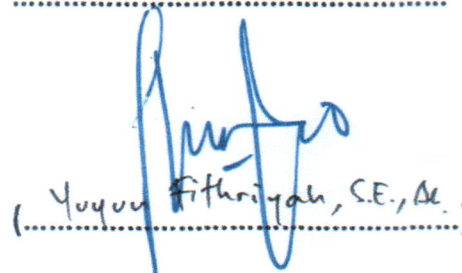 ( Yuyun Fithriyah, S.E., Ak.